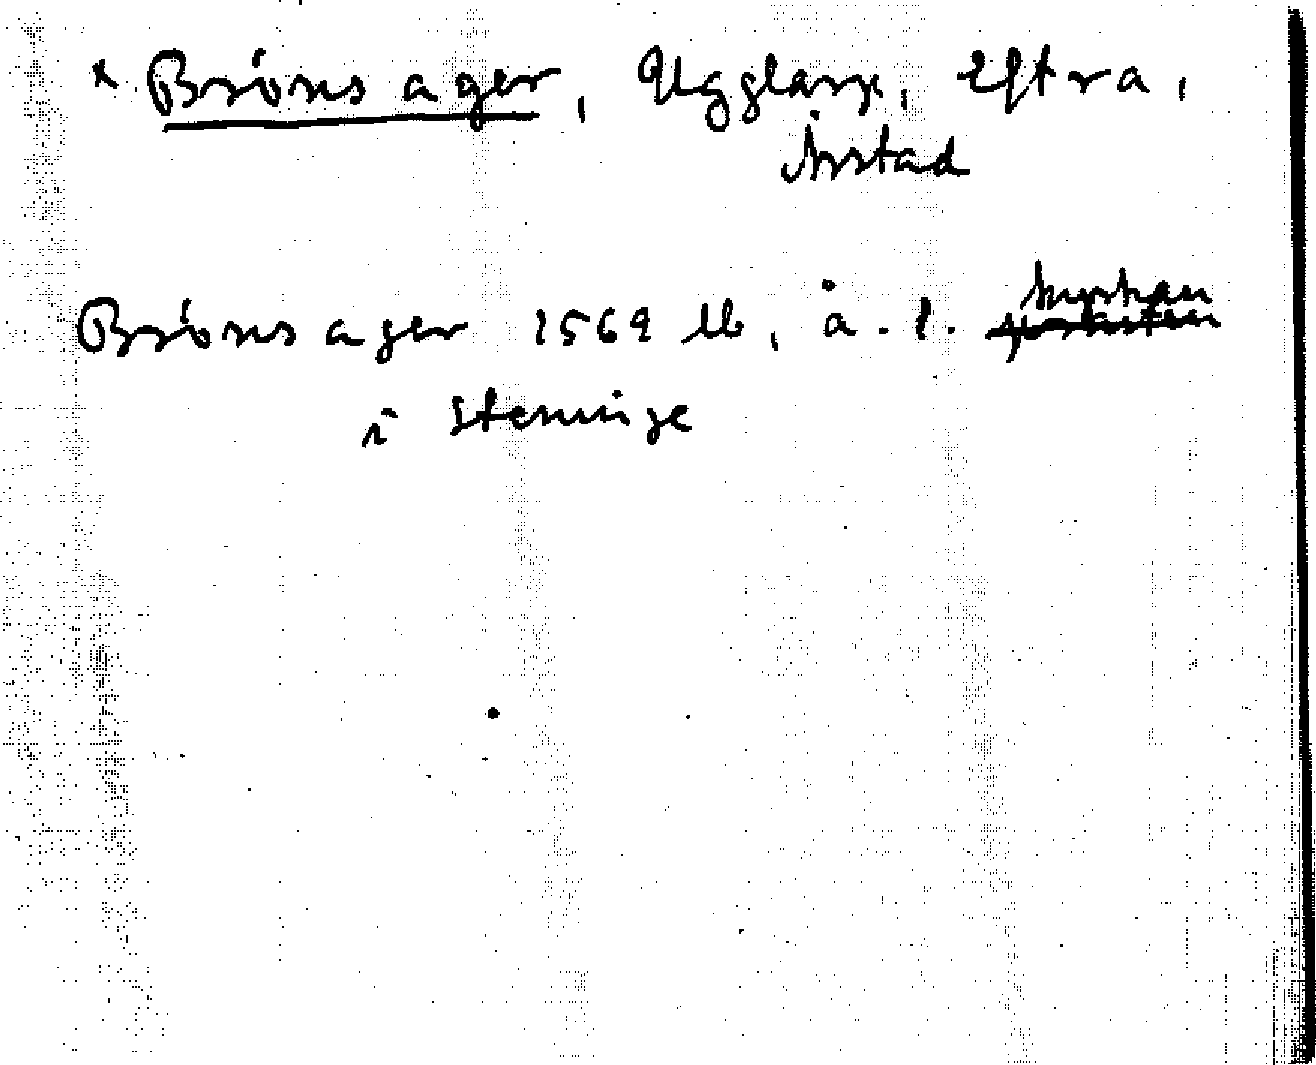 * Bröns ager, Ugglarp, Eftra,
Årstad
Bröns ager 1569 lb, å. l.
i Steninge